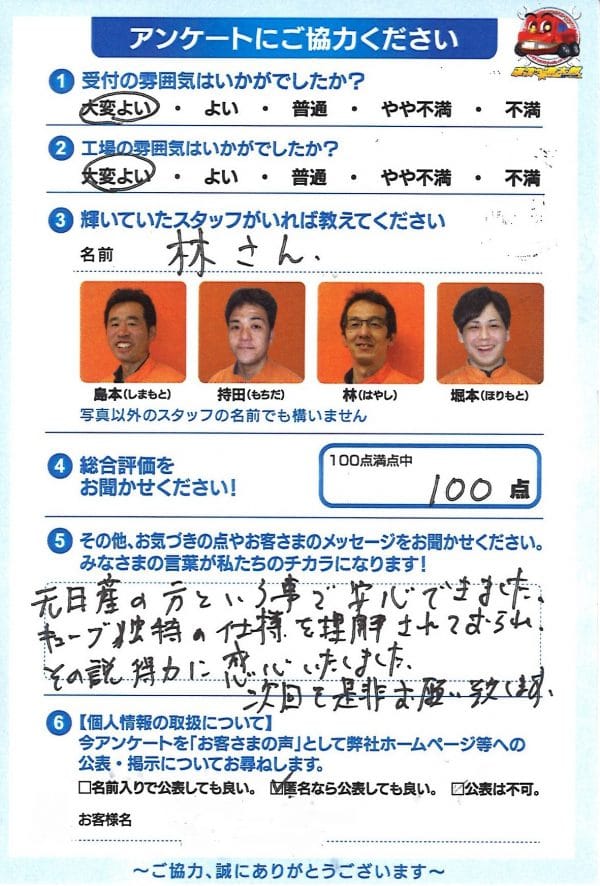 アンケートにご協力ください
1 受付の雰囲気はいかがでしたか?
大変よい ・ よい ・ 普通 ・ やや不満 ・ 不満
2 工場の雰囲気はいかがでしたか?
大変よい ・ よい ・ 普通 ・ やや不満 ・ 不満
3 輝いていたスタッフがいれば教えてください
名前 林さん.
島本(しまもと) 持田(もちだ) 林(はやし) 堀本(ほりもと)
写真以外のスタッフの名前でも構いません
4 総合評価を
お聞かせください!
100点満点中
100 点
5 その他、お気づきの点やお客さまのメッセージをお聞かせください。
みなさまの言葉が私たちのチカラになります!
元日産の方という事で安心できました.
キューブ独特の仕様を理解されておられ.
その説得力に感心いたしました.
次回も是非お願い致します.
6 【個人情報の取扱について】
今アンケートを「お客さまの声」として弊社ホームページ等への
公表・掲示についてお尋ねします。
□名前入りで公表しても良い。 ☑匿名なら公表しても良い。 ☑公表は不可。
お客様名
～ご協力、誠にありがとうございます～